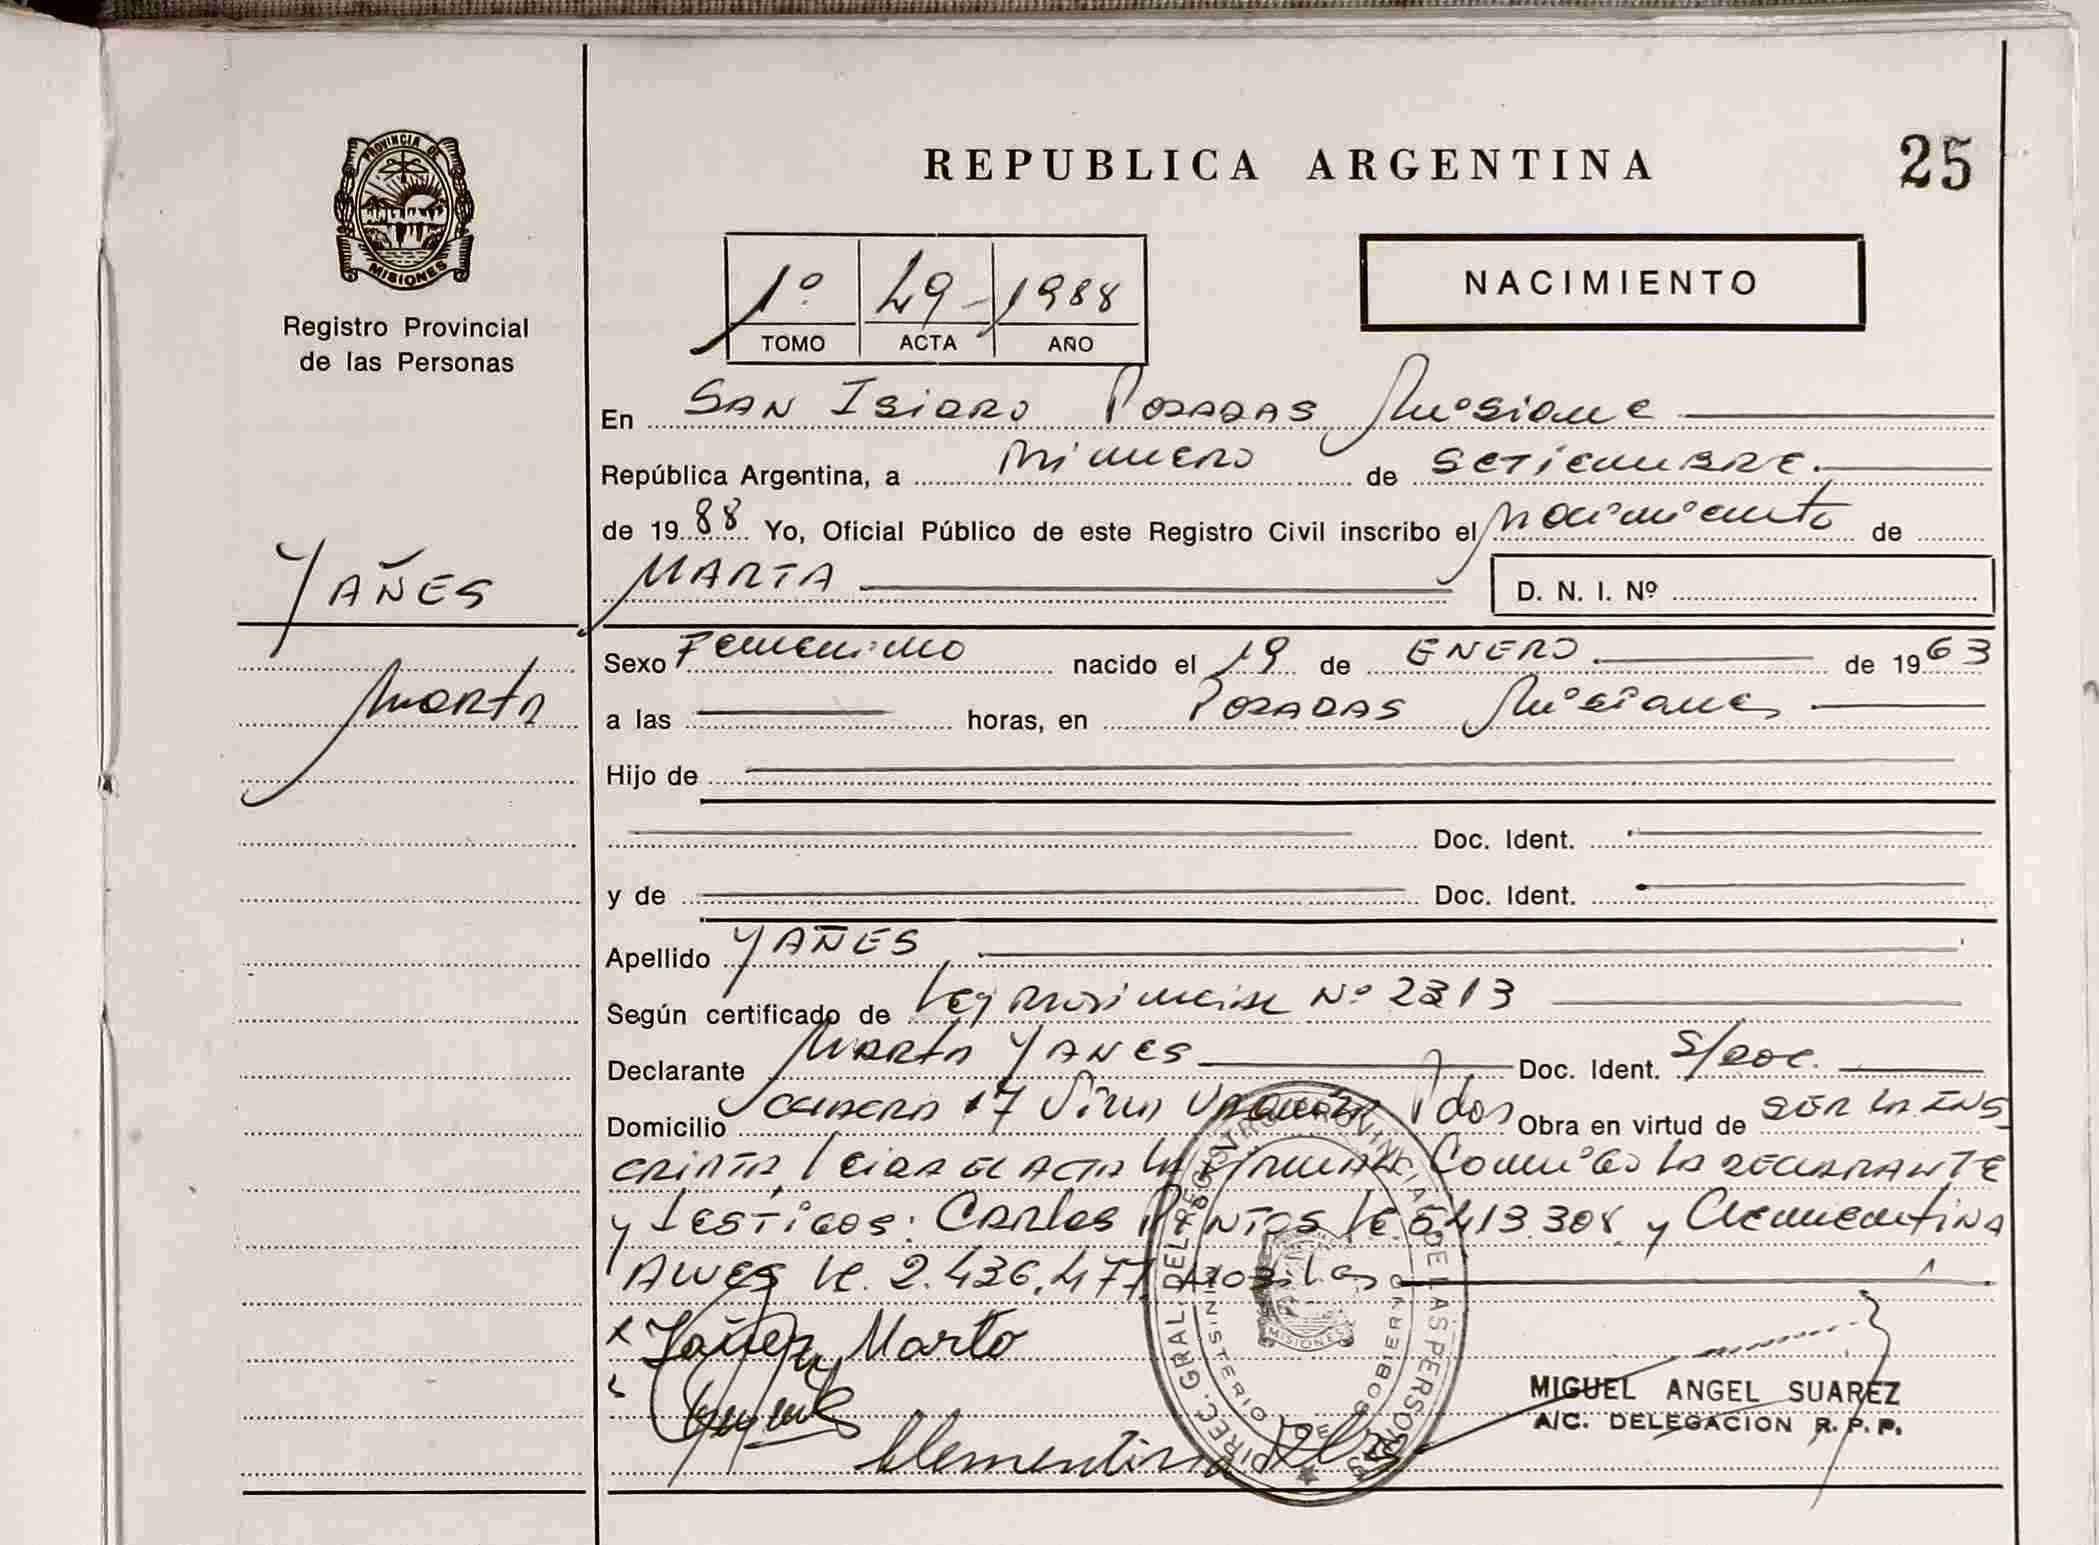 PROVINCIA DE
MISIONES
Registro Provincial
de las Personas
REPUBLICA ARGENTINA
25
1º 49 1988
TOMO ACTA AÑO
NACIMIENTO
En SAN ISIDRO POSADAS Misiones
República Argentina, a Primero de SETIEMBRE
de 1988 Yo, Oficial Público de este Registro Civil inscribo el nacimiento de
MARTA
D. N. I. Nº
YAÑES
Marta
Sexo Femenino nacido el 19 de ENERO de 1963
a las horas, en POSADAS Misiones
Hijo de
Doc. Ident.
y de Doc. Ident.
Apellido YAÑES
Según certificado de Ley Provincial Nº 2313
Declarante Marta YANES Doc. Ident. S/DOC.
Domicilio 17 Pdas Obra en virtud de SER LA INS
CRIPTA, LEIDA EL ACTA LA FIRMAN Conmigo LA DECLARANTE
y TESTIGOS: Carlos LE 5413.308 y Clementina
2.436.477
Yañes Marta
Clementina
MIGUEL ANGEL SUAREZ
A/C. DELEGACION R. P. P.
DIREC. GRAL. DEL REGISTRO PROVINCIAL DE LAS PERSONAS
MINISTERIO DE GOBIERNO
MISIONES